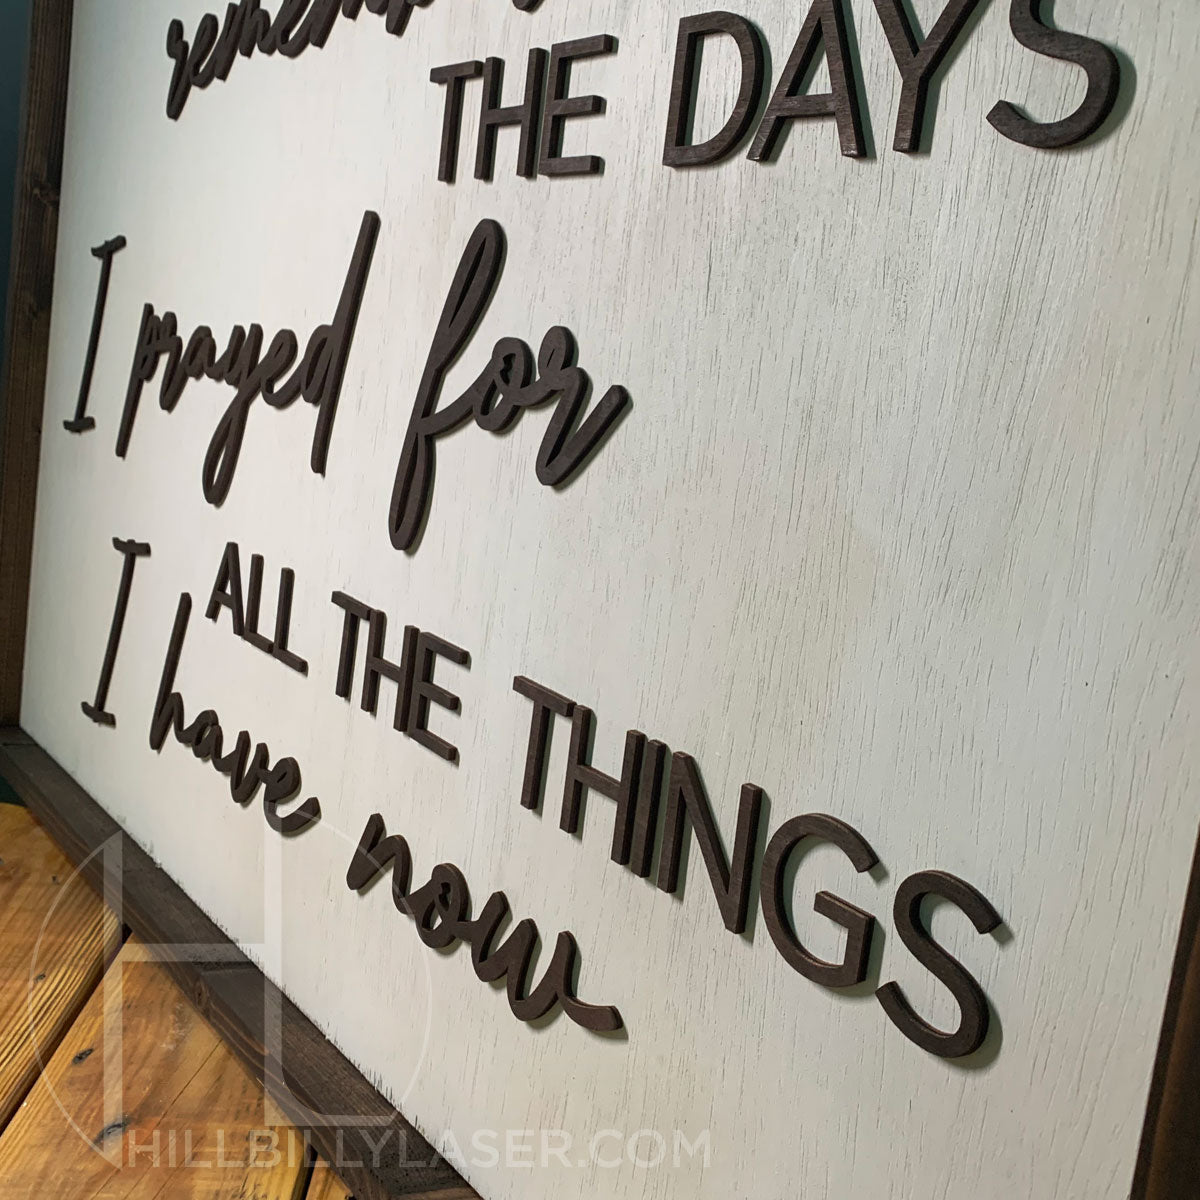 THE DAYS
I prayed for
ALL THE THINGS
I have now
HILLBILLYLASER.COM